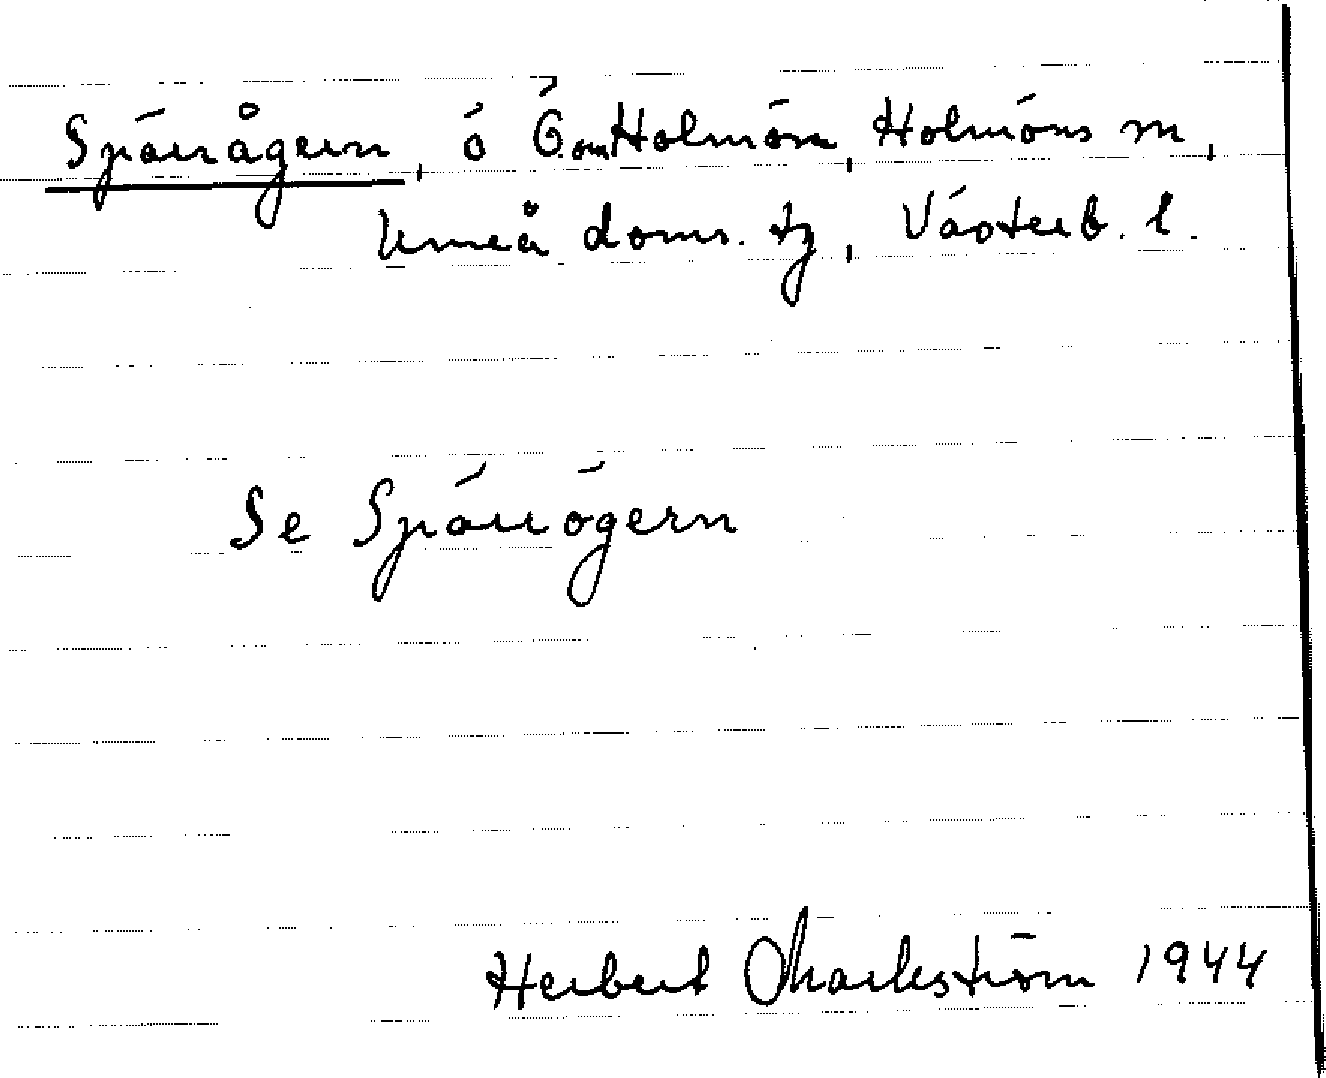 Spärrågern, ö Ö.om Holmön, Holmöns sn,
Umeå doms. tg, Västerb. l.
Se Spärrögern
Herbert Markström 1944